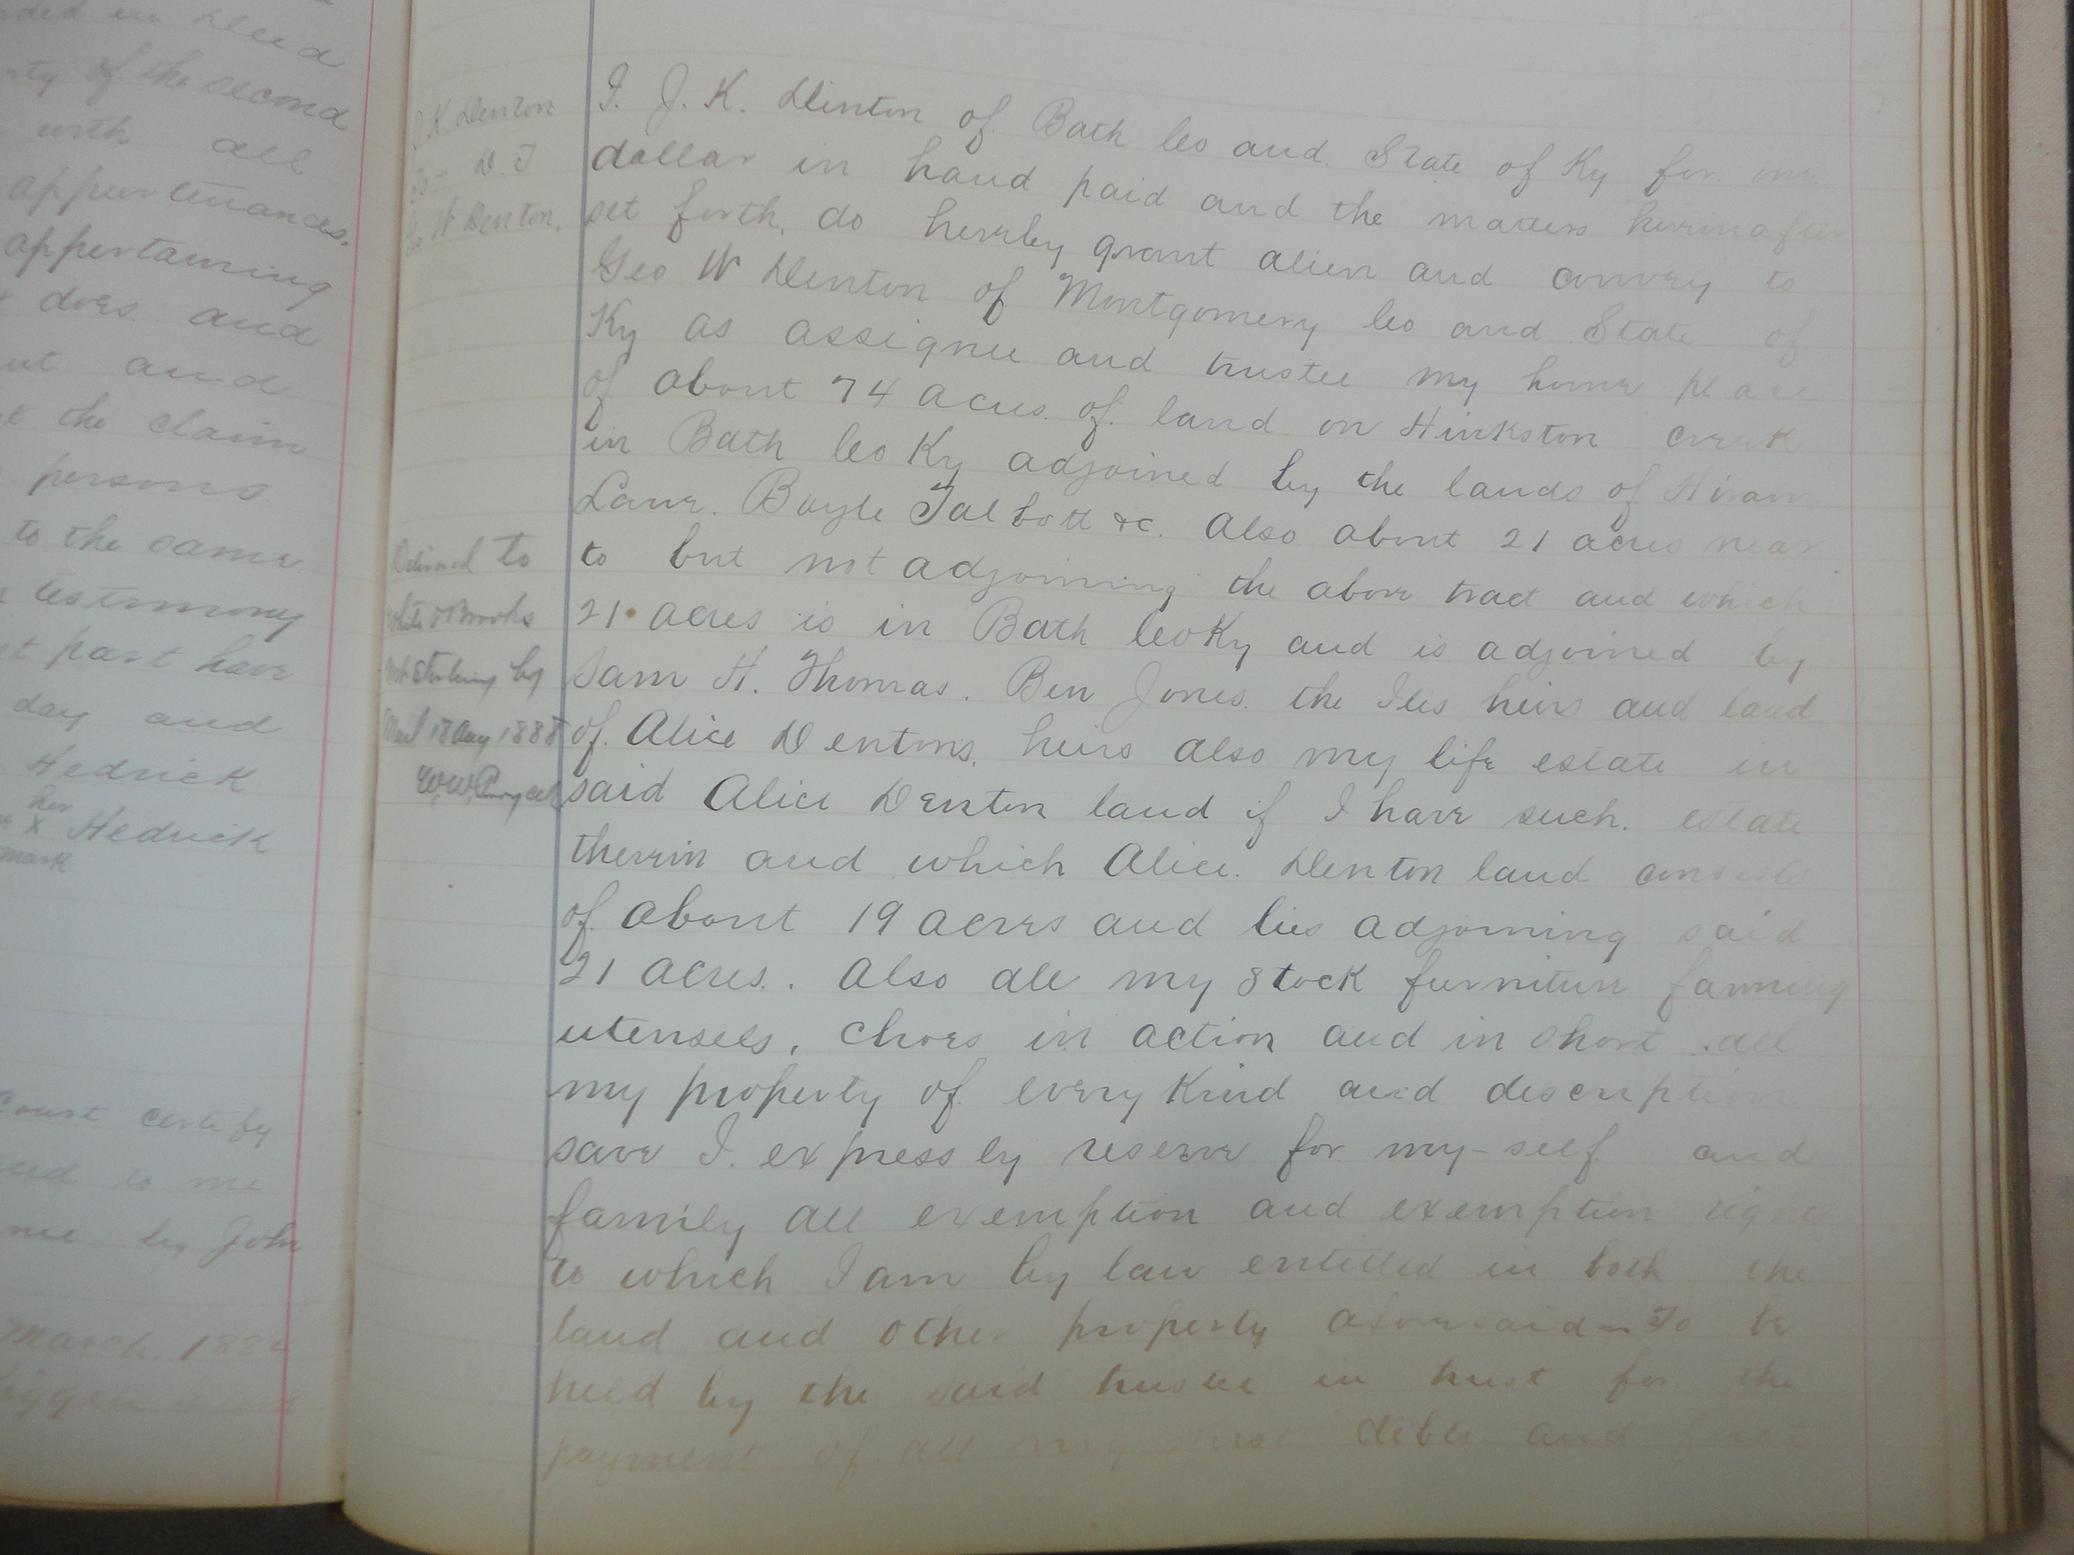 ded in Deed
rty of the second
with all
appurtenances.
appertaining
does and
and
the claim
persons
to the same
testimony
t part have
day and
Hedrick
her
x Hedrick
mark
Court certify
to me
me by John
March. 1884
J. K. Denton
To - D. T
Geo W Denton.
Delivered to
White & Brooks
Mt Sterling by
Mail 18 Aug 1888
I. J. K. Denton of Bath Co and. State of Ky for. one
dollar in hand paid and the matters herinafter
set forth, do hereby grant alien and convey to
Geo W Denton of Montgomery Co and State of
Ky as assignee and trustee my home place
of about 74 acres. of. land on Hinkston creek
in Bath Co Ky adjoined by the lands of Hiram
Lane. Boyle Talbott &c. Also about 21 acres near
to but not adjoining the above tract and which
21 acres is in Bath Co Ky and is adjoined by
Sam H. Thomas. Ben Jones. the Iles heirs and land
of. Alice Dentons, heirs also my life estate in
said Alice Denton land if I have such. estate
therin and which Alice. Denton land consists
of. about 19 acres and lies adjoining said
21 acres. . Also all my stock furniture farming
utensels, choes in action and in short .all
my property of every Kind and description
save I. expressly reserve for. my-self and
family all exemption and exemption rights
to which I am by law entitled in both the
land and other property aforesaid - To be
held by the said trustee in trust for the
payment of. all my just debts and